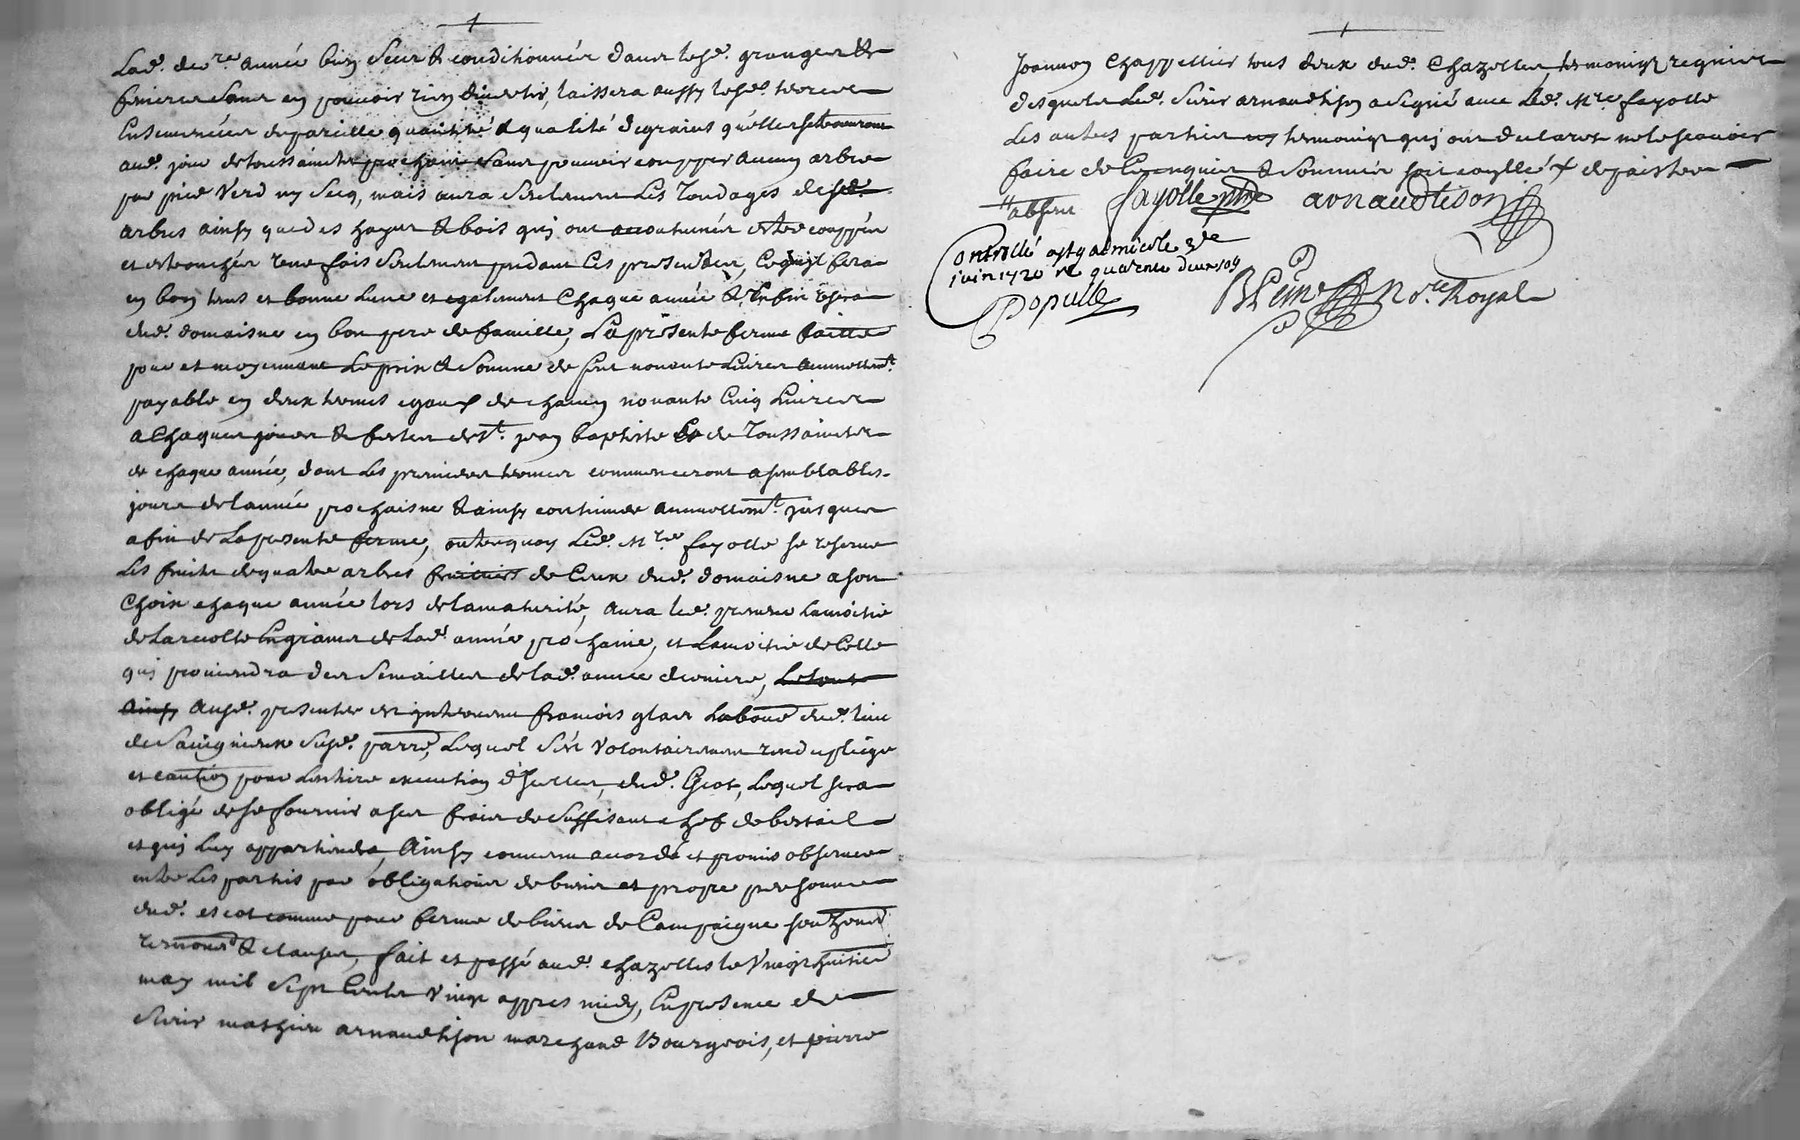 Lad. der.re année bien secs & conditionnés dans lesd. granges &
fenieres sans en pouvoir rien divertir, laissera aussy lesd. terres
Ensemencées de pareille quantité & qualité de grains qu'elles se trouveront
aud. jour de toussaints prochain sans pouvoir coupper aucun arbre
par pied verd ny secq, mais aura seulement Les Tondages desd.
arbres ainsy que des hayes & bois qui ont accoutumés estre couppés
et esbranchés une fois seulement pendant Les presentes, Ce qu'il fera
en bon tems et bonne Lune et egalement Chaque année & Enfin usera
dud. domaisne en bon pere de famille, La présente ferme faitte
pour et moyennant Le prix & Somme de Cent nonante Livres annuellemt.
payable en deux termes egaux de chacun nonante Cinq Livres
a Chaques jours & festes de St. jean baptiste & de Toussaints
de chaque année, dont Les premiers termes commenceront a semblables
jours de l'année prochaine & ainsy continuer annuellemt. jusques
a fin de La presente ferme, outre quoy Led. Mre fayolle se reserve
Les fruits de quatre arbres fruitiers de Ceux dud. domaisne a son
Choix chaque année lors de la maturité, aura led. preneur La moitié
de La recolte En grains de Lad. année prochaine, et La moitié de Celle
qui proviendra des Semailles de lad. année derniere, Le tout
Ainsy Aux presentes est intervenu francois glas Laboure. dud. lieu
de Savigneux susd. parre, Lequel s'est volontairement rendu pleige
et caution pour L'entiere execution d'Icelles, dud. Escot, Lequel sera
obligé de se fournir a ses frais de suffisant chef de bestail
et qui Luy appartiendra, Ainsy convenu accordé et promis observer
entre Les partis par obligations de biens et propre personne
dud. escot comme pour ferme de biens de Campaigne soubzons
renons & clauses, fait et passé aud. chazelles le Vingt huitie
may mil Sept Cents Vingt appres midy, En presence de
Sieur mathieu arnaudtison marchand Bourgeois, et pierre
Joannon Chappellier tous deux dud. Chazelles, tesmoings requis
desquels Led. Sieur arnaudtison a signé avec Led. Mre fayolle
Les autres parties et tesmoings qui ont declarer ne le scavoir
faire de Ce enquis & Sommés soit conllé † de paistre
absent fayolle ptre arnaudtison
Controllé a St galmier le 3e
juin 1720 rt quarente deux sols
Populle
Nore. Royal